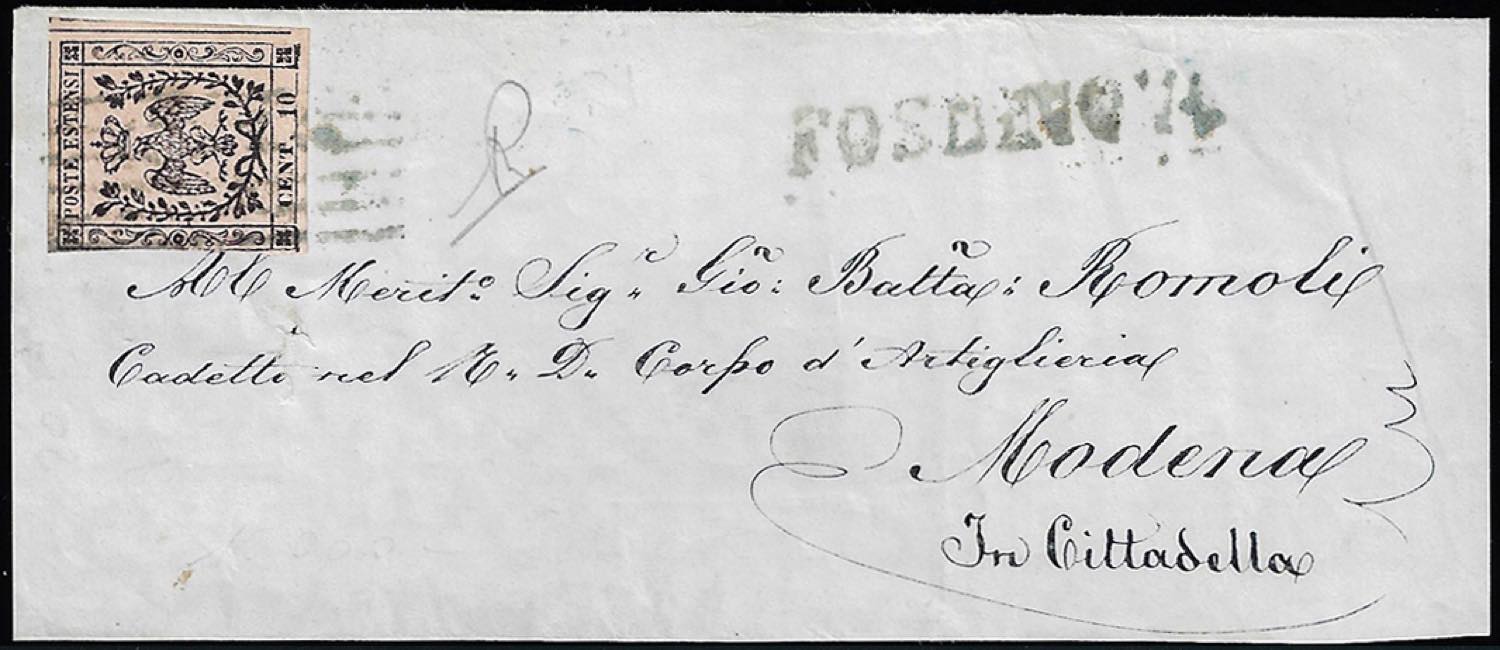 POSTE ESTENSI
CENT. 10
R
FOSDINOVO
All Merit.º Sig.r Gio: Batta: Romoli
Cadetto nel R. D. Corpo d'Artiglieria
Modena
In Cittadella